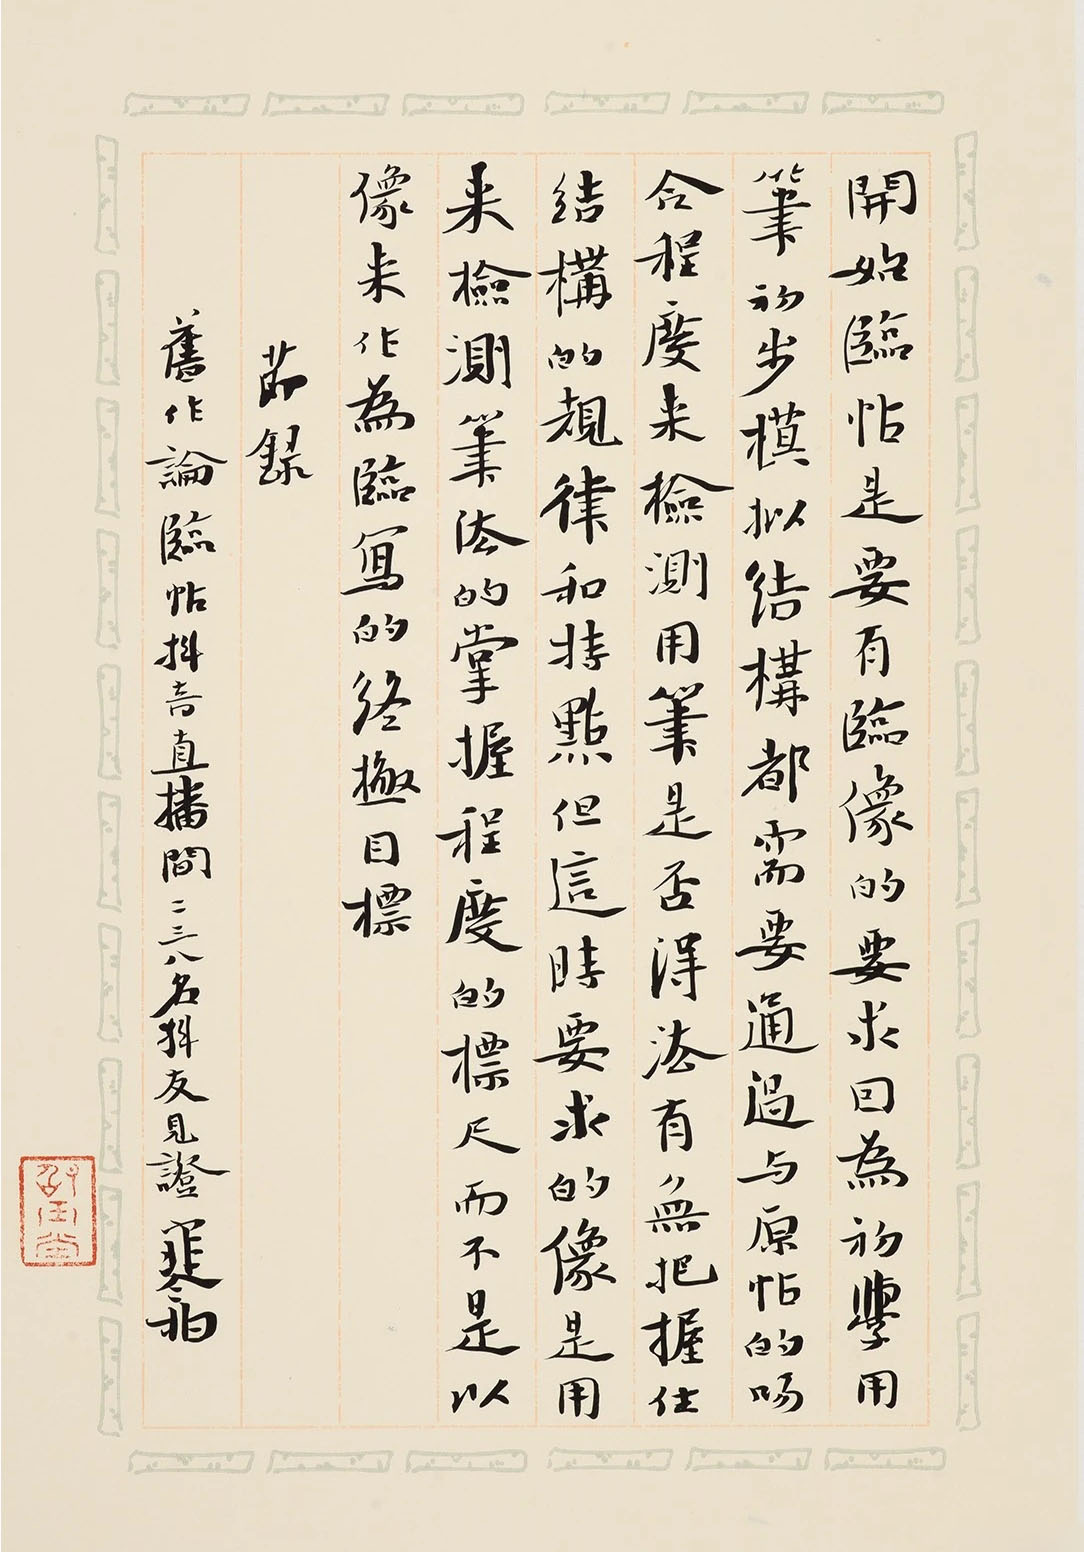 開始臨帖是要有臨像的要求因為初學用
筆初步模拟结構都需要通過与原帖的吻
合程度来檢測用筆是否得法有無把握住
结構的規律和特點但這時要求的像是用
来檢測筆法的掌握程度的標尺而不是以
像来作為臨寫的終極目標
節録
舊作論臨帖抖音直播間二三八名抖友見證